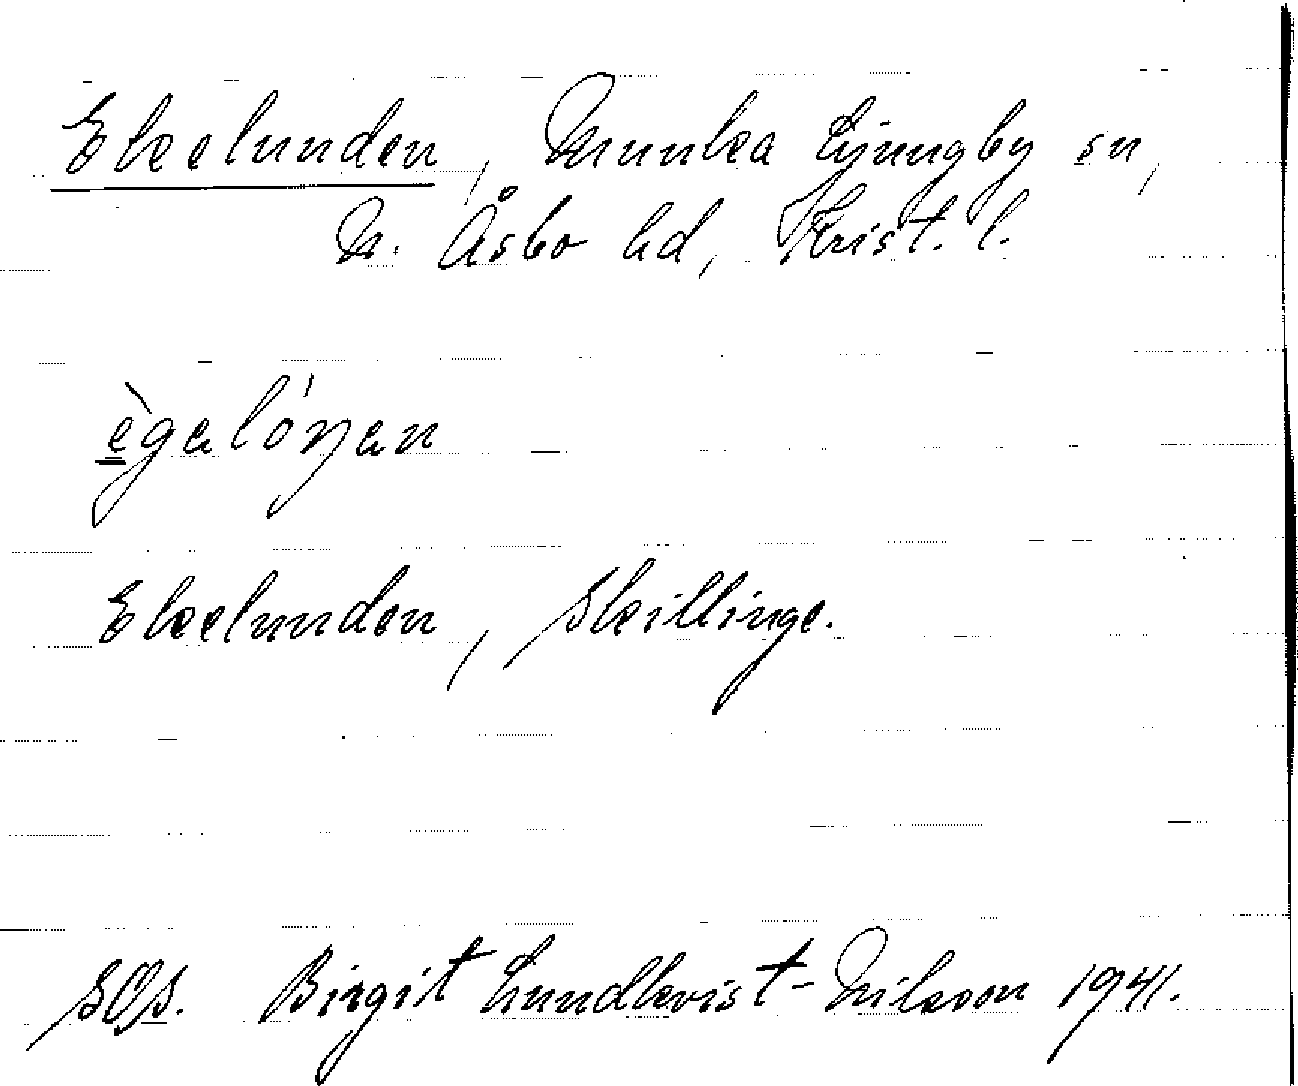 Ekelunden, Munka Ljungby sn,
N. Åsbo hd, Krist. l.
ègalóŋan
Ekelunden, Skillinge.
SOS. Birgit Lundkvist-Nilsson 1941.